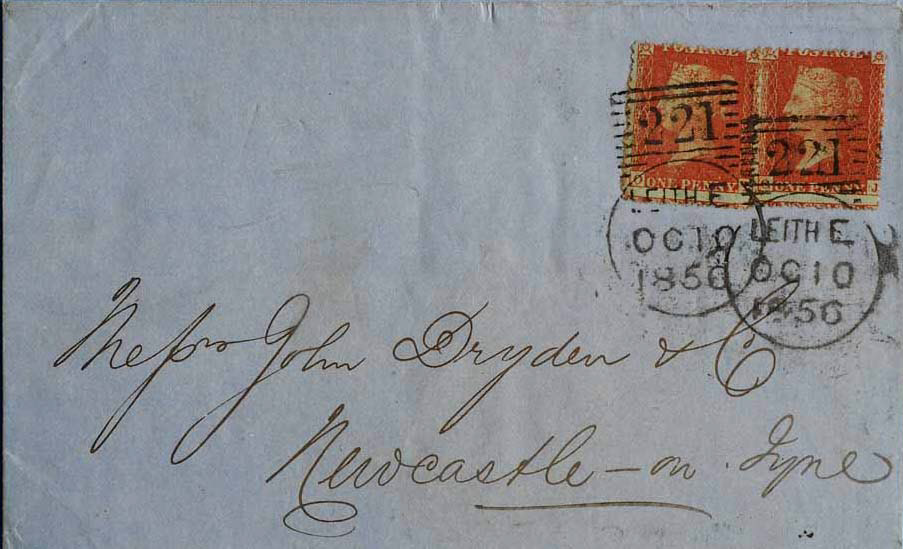 POSTAGE POSTAGE
221 221
ONE PENNY ONE PENNY J
LEITH E LEITH E
OC 10 OC 10
1856 1856
Messrs John Dryden & Co
Newcastle-on-Tyne